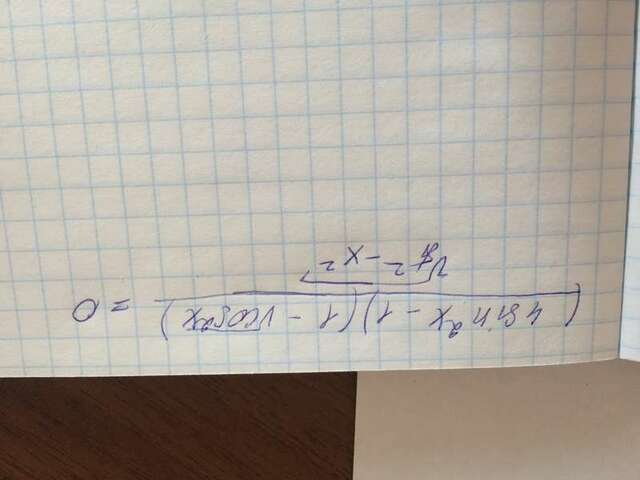 (4sin²x - 1)(1 - √cos²x) = 0
√π² - x²